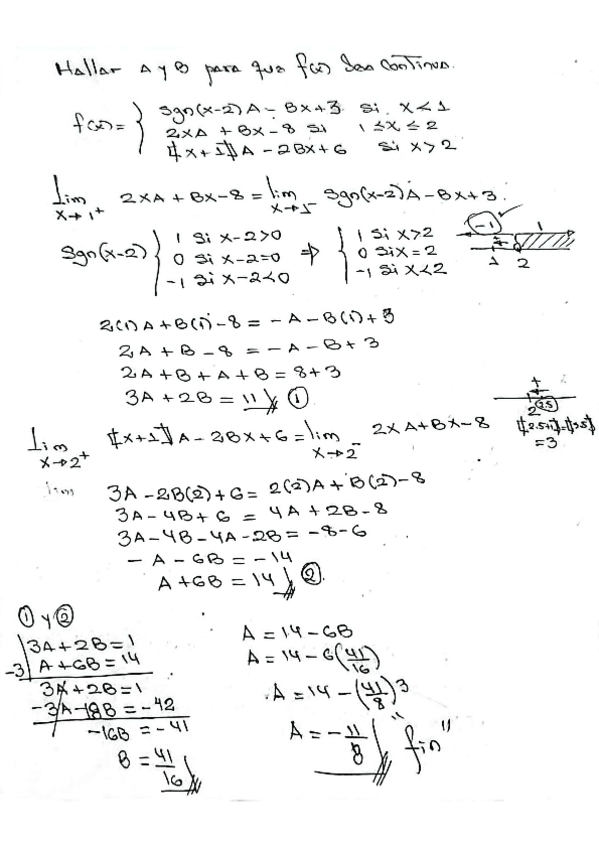 Hallar A y B para que f(x) sea continua.
f(x) = { sgn(x-2)A - Bx+3 si x<1
2xA + Bx-8 si 1≤x≤2
⟦x+1⟧A - 2Bx+6 si x>2
Lim x→1⁺ 2xA + Bx-8 = lim x→1⁻ sgn(x-2)A - Bx+3.
sgn(x-2) { 1 si x-2>0 ⇒ { 1 si x>2
0 si x-2=0 0 si x=2
-1 si x-2<0 -1 si x<2
-1 ✓ 1
1 2
2(1)A + B(1) - 8 = -A - B(1) + 3
2A + B - 8 = -A - B + 3
2A + B + A + B = 8+3
3A + 2B = 11 ①
Lim x→2⁺ ⟦x+1⟧A - 2Bx+6 = lim x→2⁻ 2xA+Bx-8
+
2 2.5
⟦2.5+1⟧=⟦3.5⟧
=3
lim
3A - 2B(2) + 6 = 2(2)A + B(2) - 8
3A - 4B + 6 = 4A + 2B - 8
3A - 4B - 4A - 2B = -8-6
-A - 6B = -14
A + 6B = 14 ②
① y ②
3A + 2B = 1
-3 | A + 6B = 14
3A + 2B = 1
-3A - 18B = -42
-16B = -41
B = 41/16
A = 14 - 6B
A = 14 - 6(41/16)
A = 14 - (41/8)3
A = -11/8 "fin"